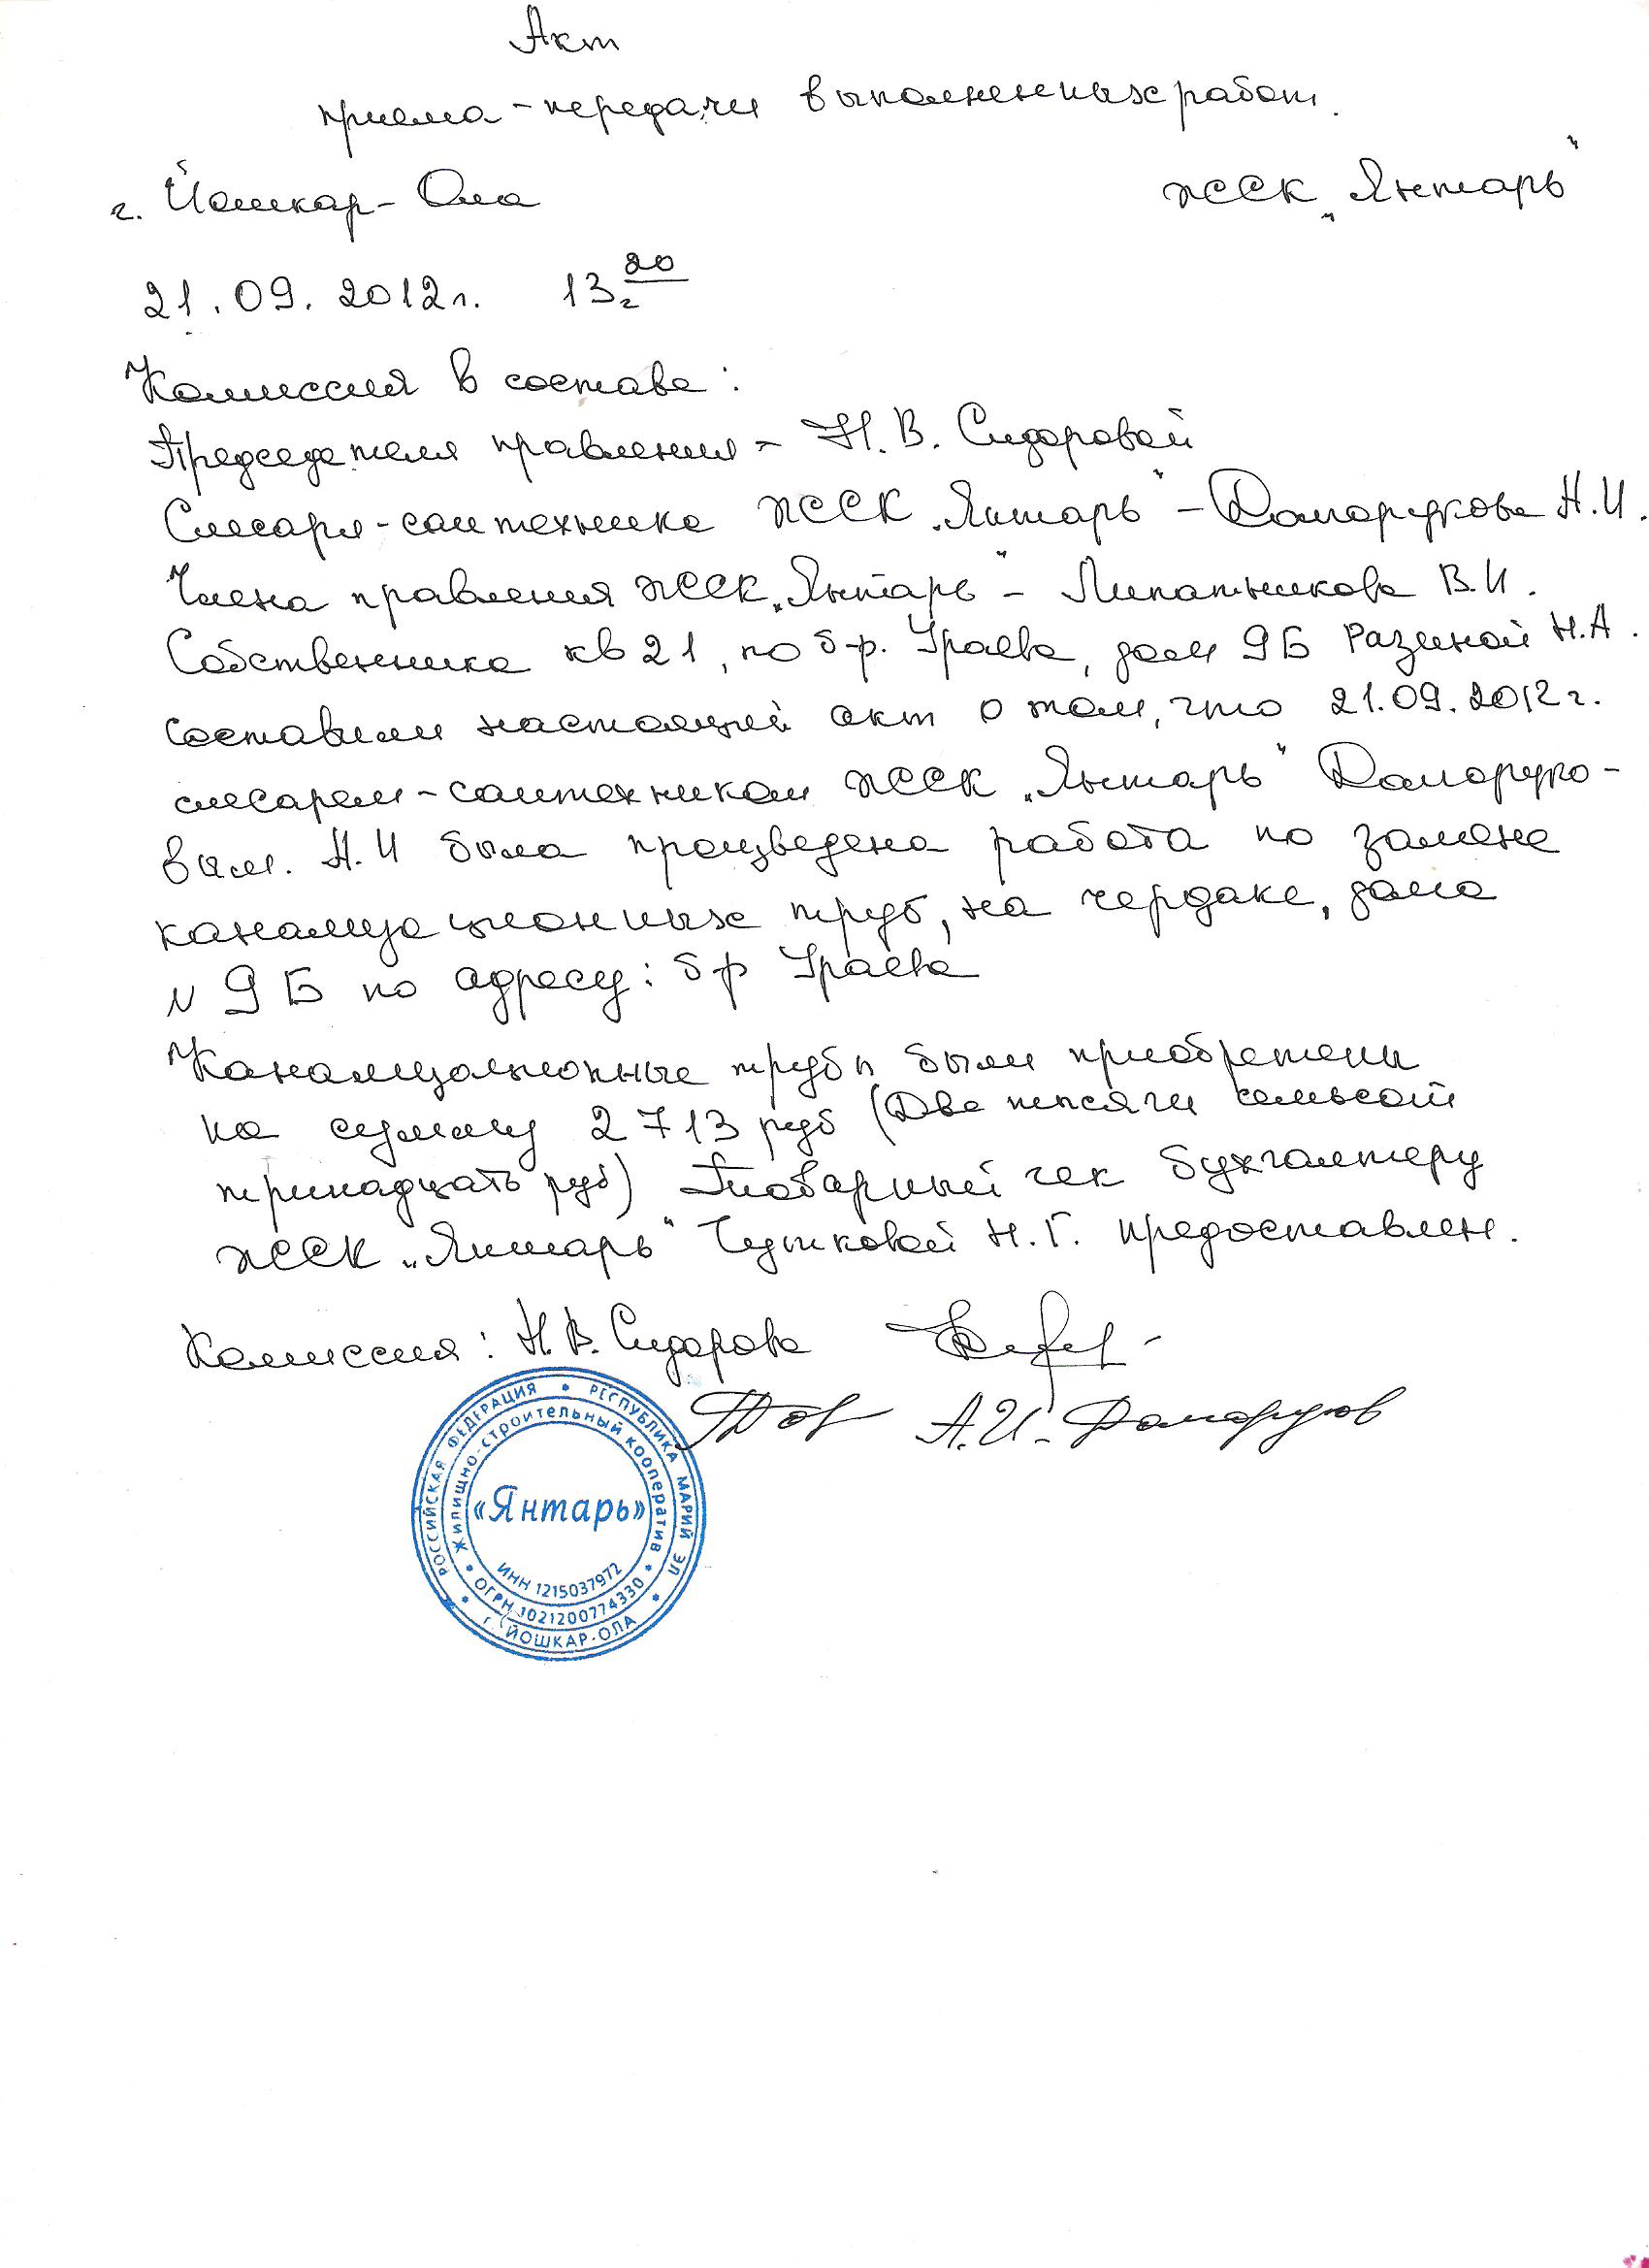 Акт
приема-передачи выполненных работ.
г. Йошкар-Ола ЖССК „Янтарь"
21.09.2012г. 13 20 г
Комиссия в составе:
Председателя правления - Н.В. Сидоровой
Слесаря-сантехника ЖССК „Янтарь" - Доморукова Н.И.
Члена правления ЖССК „Янтарь" - Липатникова В.И.
Собственника кв 21, по б-р. Ураева, дом 9Б Разиной Н.А.
составили настоящий акт о том, что 21.09.2012г.
слесарем-сантехником ЖССК „Янтарь" Доморуко-
вым. Н.И была произведена работа по замене
канализационных труб, на чердаке, дома
N 9Б по адресу: б-р Ураева
Канализационные трубы были приобретены
на сумму 2713 руб (Две тысячи семьсот
тринадцать руб) Товарный чек бухгалтеру
ЖССК „Янтарь" Н.Г. предоставлен.
Комиссия: Н.В. Сидорова
А.И. Доморуков
РОССИЙСКАЯ ФЕДЕРАЦИЯ • РЕСПУБЛИКА МАРИЙ ЭЛ
Жилищно-строительный кооператив
«Янтарь»
ИНН 1215037972
ОГРН 1021200774330
г. ЙОШКАР-ОЛА